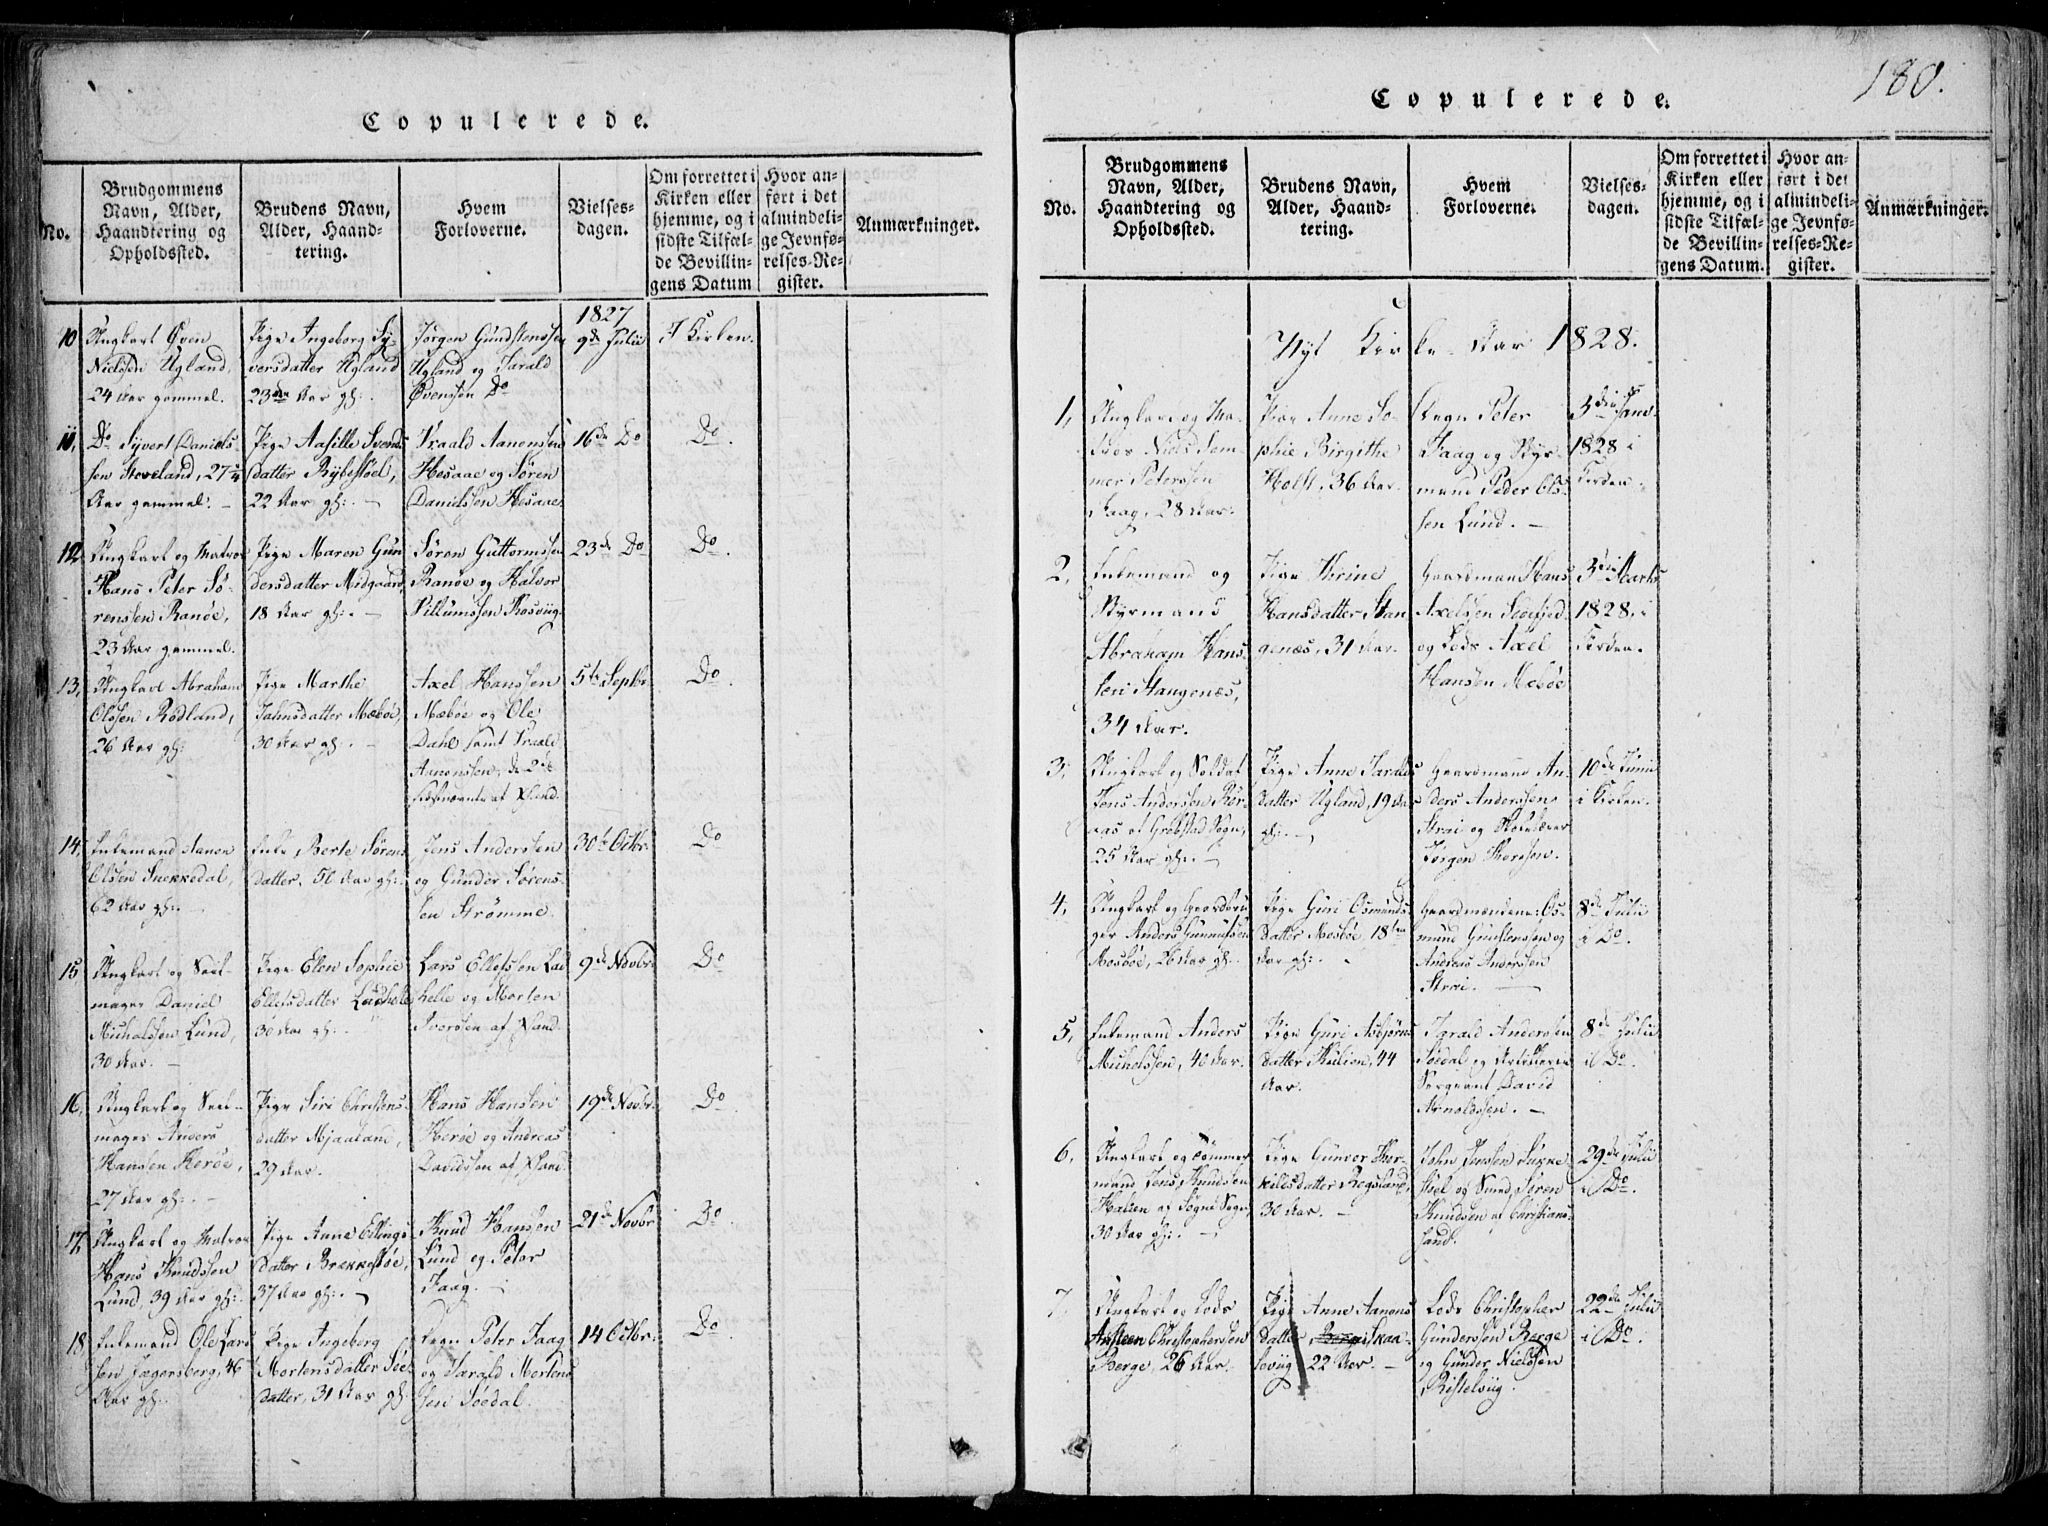 180.
Copulerede.
No.
Brudgommens
Navn, Alder,
Haandtering og
Opholdssted.
Brudens Navn,
Alder, Haand-
tering.
Hvem
Forloverne.
Vielses-
dagen.
Om forrettet i
Kirken eller
hjemme, og i
sidste Tilfæl-
de Bevillin-
gens Datum
Hvor an-
ført i det
almindeli-
ge Jevnfø-
relses-Re-
gister.
Anmærkninger.
1827
10
Ungkarl Øven
Nielssen Ugland,
24 Aar gammel.
Pige Ingeborg Sy-
versdatter Ugland
23de Aar gl:.
Jørgen Gundstenssen
Ugland og Tarald
Øvenssen Do
9de Julii
I Kirken.
11,
Do Syvert Daniels
sen Stoveland, 27 1/4
Aar gammel. -
Pige Aasille Svends
datter Rybestøel,
22 Aar gl:. -
Vraald Aanonssen
Hesaae og Søren
Danielssen Hesaae
16de Do
Do.
12
Ungkarl og Matros
Hans Peter Sø-
renssen Ranøe,
23 Aar gammel.
Pige Maren Gun
dersdatter Midgaard,
18 Aar gl:. -
Søren Guttormssen
Ranøe og Halvor
Villumssen Kosviig.
23de Do
Do.
13,
Ungkarl Abraham
Olssen Rødland,
26 Aar gl:
Pige Marthe
Jahnsdatter Mæbøe,
30 Aar gl:. -
Axel Hanssen
Mæbøe og Ole
Dahl samt Vraald
Aanonssen, de 2de
sidstnævnte af Xsand.
5te Septbr.
Do
14,
Enkemand Aanon
Olssen Snekkedal,
62 Aar gl:. -
Enke Berte Sørens
datter, 50 Aar gl:.
Jens Anderssen
og Gunder Sørens-
sen Strømme.
30te Octbr.
Do
15
Ungkarl og Seel-
mager Daniel
Michalssen Lund,
30 Aar. -
Pige Elen Sophie
Ellefsdatter Ladhelle
30 Aar gl:.
Lars Ellefssen Lad
helle og Morten
Ivorssen af Xsand.
9de Novbr.
Do
16,
Ungkarl og Seel-
mager Anders
Hanssen Herøe,
27 Aar gl:. -
Pige Siri Christens-
datter Mjaaland,
29 Aar.
Hans Hanssen
Herøe og Andreas
Davidssen af Xsand.
19de Novbr.
Do
17,
Ungkarl og Matros
Hans Knudssen
Lund, 39 Aar gl:.
Pige Anne Ellings
datter Brækkestøe,
37 Aar gl:. -
Knud Hanssen
Lund og Peter
Faag. -
21de Novbr
Do.
18
Enkemand Ole Lars
sen Jægersberg, 46
Aar gl:.
Pige Ingeborg
Mortensdatter Søe
datter, 31 Aar gl:
Degn Peter Faag
og Tarald Mortens
sen Søedal.
14 Octbr.
Do.
Copulerede.
No.
Brudgommens
Navn, Alder,
Haandtering og
Opholdssted.
Brudens Navn,
Alder, Haand-
tering.
Hvem
Forloverne.
Vielses-
dagen.
Om forrettet i
Kirken eller
hjemme, og i
sidste Tilfæl-
de Bevillin-
gens Datum.
Hvor an-
ført i det
almindeli-
ge Jevnfø-
relses-Re-
gister.
Anmærkninger.
Nyt Kirke-Aar 1828.
1,
Ungkarl og Ma-
tros Niels Jem-
mer Peterssen
Faag, 28 Aar.
Pige Anne So-
phie Birgithe
Holst, 36 Aar.
Degn Peter
Faag og Styr-
mand Peder Ols
sen Lund. -
3die Janr
1828 i
Kirken.
2,
Enkemand og
Styrmand
Abraham Hans-
sen Stangenæs,
34 Aar.
Pige Thrine
Hansdatter Stan
genæs, 31 Aar.
Gaardmand Hans
Axelssen
og Lods Axel
Hanssen Mæbøe
3die Marts
1828, i
Kirken.
3,
Ungkarl og Soldat
Jens Anderssen Rør-
aas af Greebstad Sogn,
25 Aar gl:. -
Pige Anne Taralds
datter Ugland, 19 Aar
gl:. -
Gaardmand An
ders Anderssen
Strai og Skolelærer
Jørgen Thorssen.
10de Junii
i Kirken.
4,
Ungkarl og Gaardbru
ger Anders Gunnufssen
Mosbøe, 26 Aar gl:.
Pige Guri Osmunds
datter Mosbøe, 18ten
Aar gl:.
Gaardmændene: Os-
mund Gundstenssen og
Andreas Anderssen
Strai. -
8de Julii
i Do.
5,
Enkemand Anders
Michelssen, 40 Aar.
Pige Guri Asbjørns
datter Kulien, 44
Aar.
Tarald Anderssen
Søedal og Artillerie
Sergeant David
Arnoldssen. -
8de Julii
i Do.
6,
Ungkarl og Tømmer
mand Jens Knudssen
Halsen af Søgne Sogn,
30 Aar gl:. -
Pige Gunvor Thor-
kildsdatter Regsland,
30 Aar. -
John Jenssen Sukke
støel og Smed Søren
Knudsen af Christians-
sand.
29de Julii
i Do.
7.
Ungkarl og Lods
Ansteen Christophersen
Berge, 26 Aar.
Pige Anne Aanons
datter, Skaa
leviig 22 Aar. -
Lods Christopher
Gunderssen Berge
og Gunder Nielssen
Ristelviig.
22de Julii
i Do.